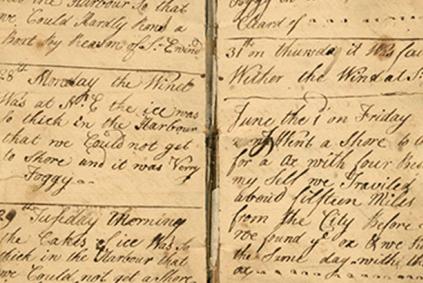 the Harbour So that
we Could Hardly hand a
Boat by Reason of
28th Monday the Wind
Was at the ice was
So thick in the Harbour
that we Could not get
to Shore and it was Very
Foggy
29th Tusday Morning
the Cakes of ice Was So
thick in the Harbour that
we Could not get a Shore
Foggy on
Caard of
31st on thursda it Was
Wither the Wind at
June the 1 on Friday
Went a Shore to
for a Ox with four
my Self we Traviled
aboud fifteen Miles
from the City Before
we found ye ox & we
the Same day with th
ox